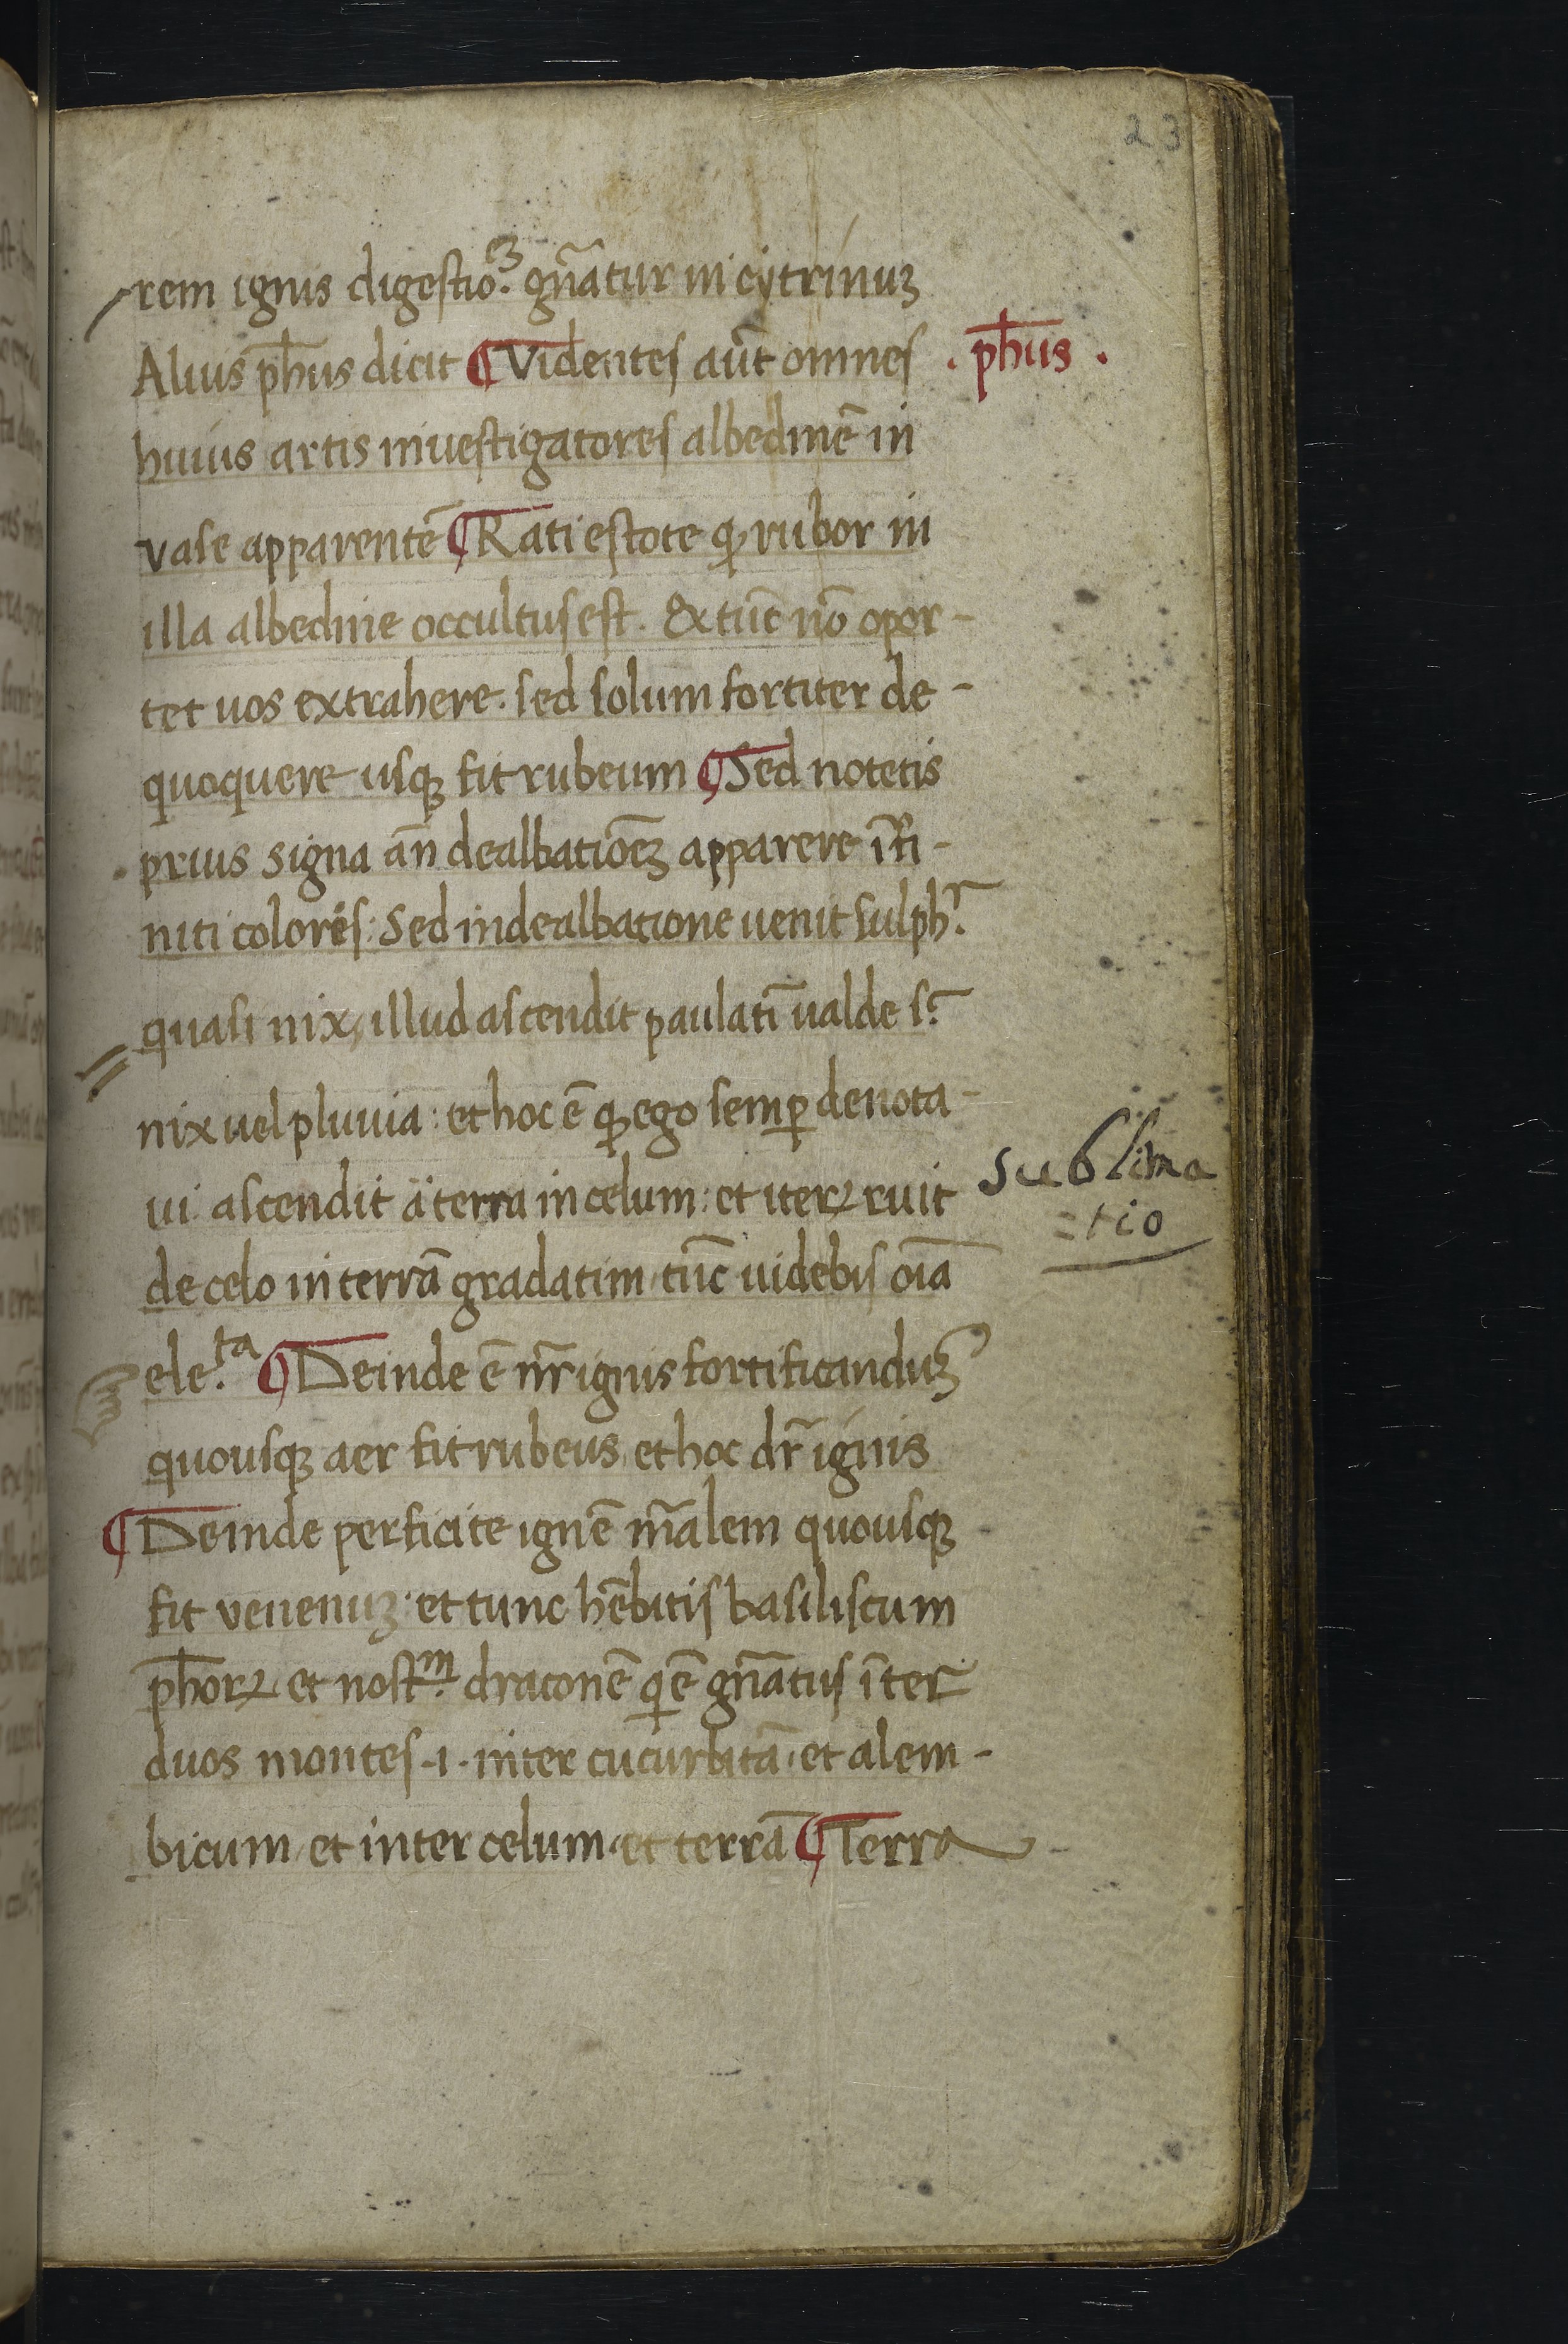 23
rem ignis digestio.ꝫ gñatur in cytrinuꝫ
Alius ph̄us dicit ¶ Videntes aūt omnes
. ph̄us .
huius artis inuestigatores albedinē in
vase apparentē ¶ Rati estote ꝙ rubor in
illa albedine occultus est. Ex tūc nō opor-
tet uos extrahere. sed solum fortiter de-
quoquere usqꝫ fit rubeum ¶ Sed notetis
prius signa añ dealbationēꝫ apparere īfi-
niti colores: Sed in dealbatione uenit sulph.ʳ
quasi nix, illud ascendit paulatī ualde s.̄
nix uel pluuia: et hoc ē ꝙ ego semꝑ denota-
ui ascendit a terra in celum: et iteꝝ ruit
sublima
=tio
de celo in terrā gradatim, tūc uidebis oīa
ele.ta ¶ Deinde ē nr̄ ignis fortificanduꝫ
quousqꝫ aer fit rubeus, et hoc dr̄ ignis
¶ Deinde perficite ignē nr̄alem quousqꝫ
fit venenuꝫ: et tunc hēbitis basiliscum
ph̄oꝝ et nost.m draconē q̄ ē gñatus īter
duos montes .i. inter cucurbitā, et alem-
bicum, et inter celum, et terrā ¶ Terra